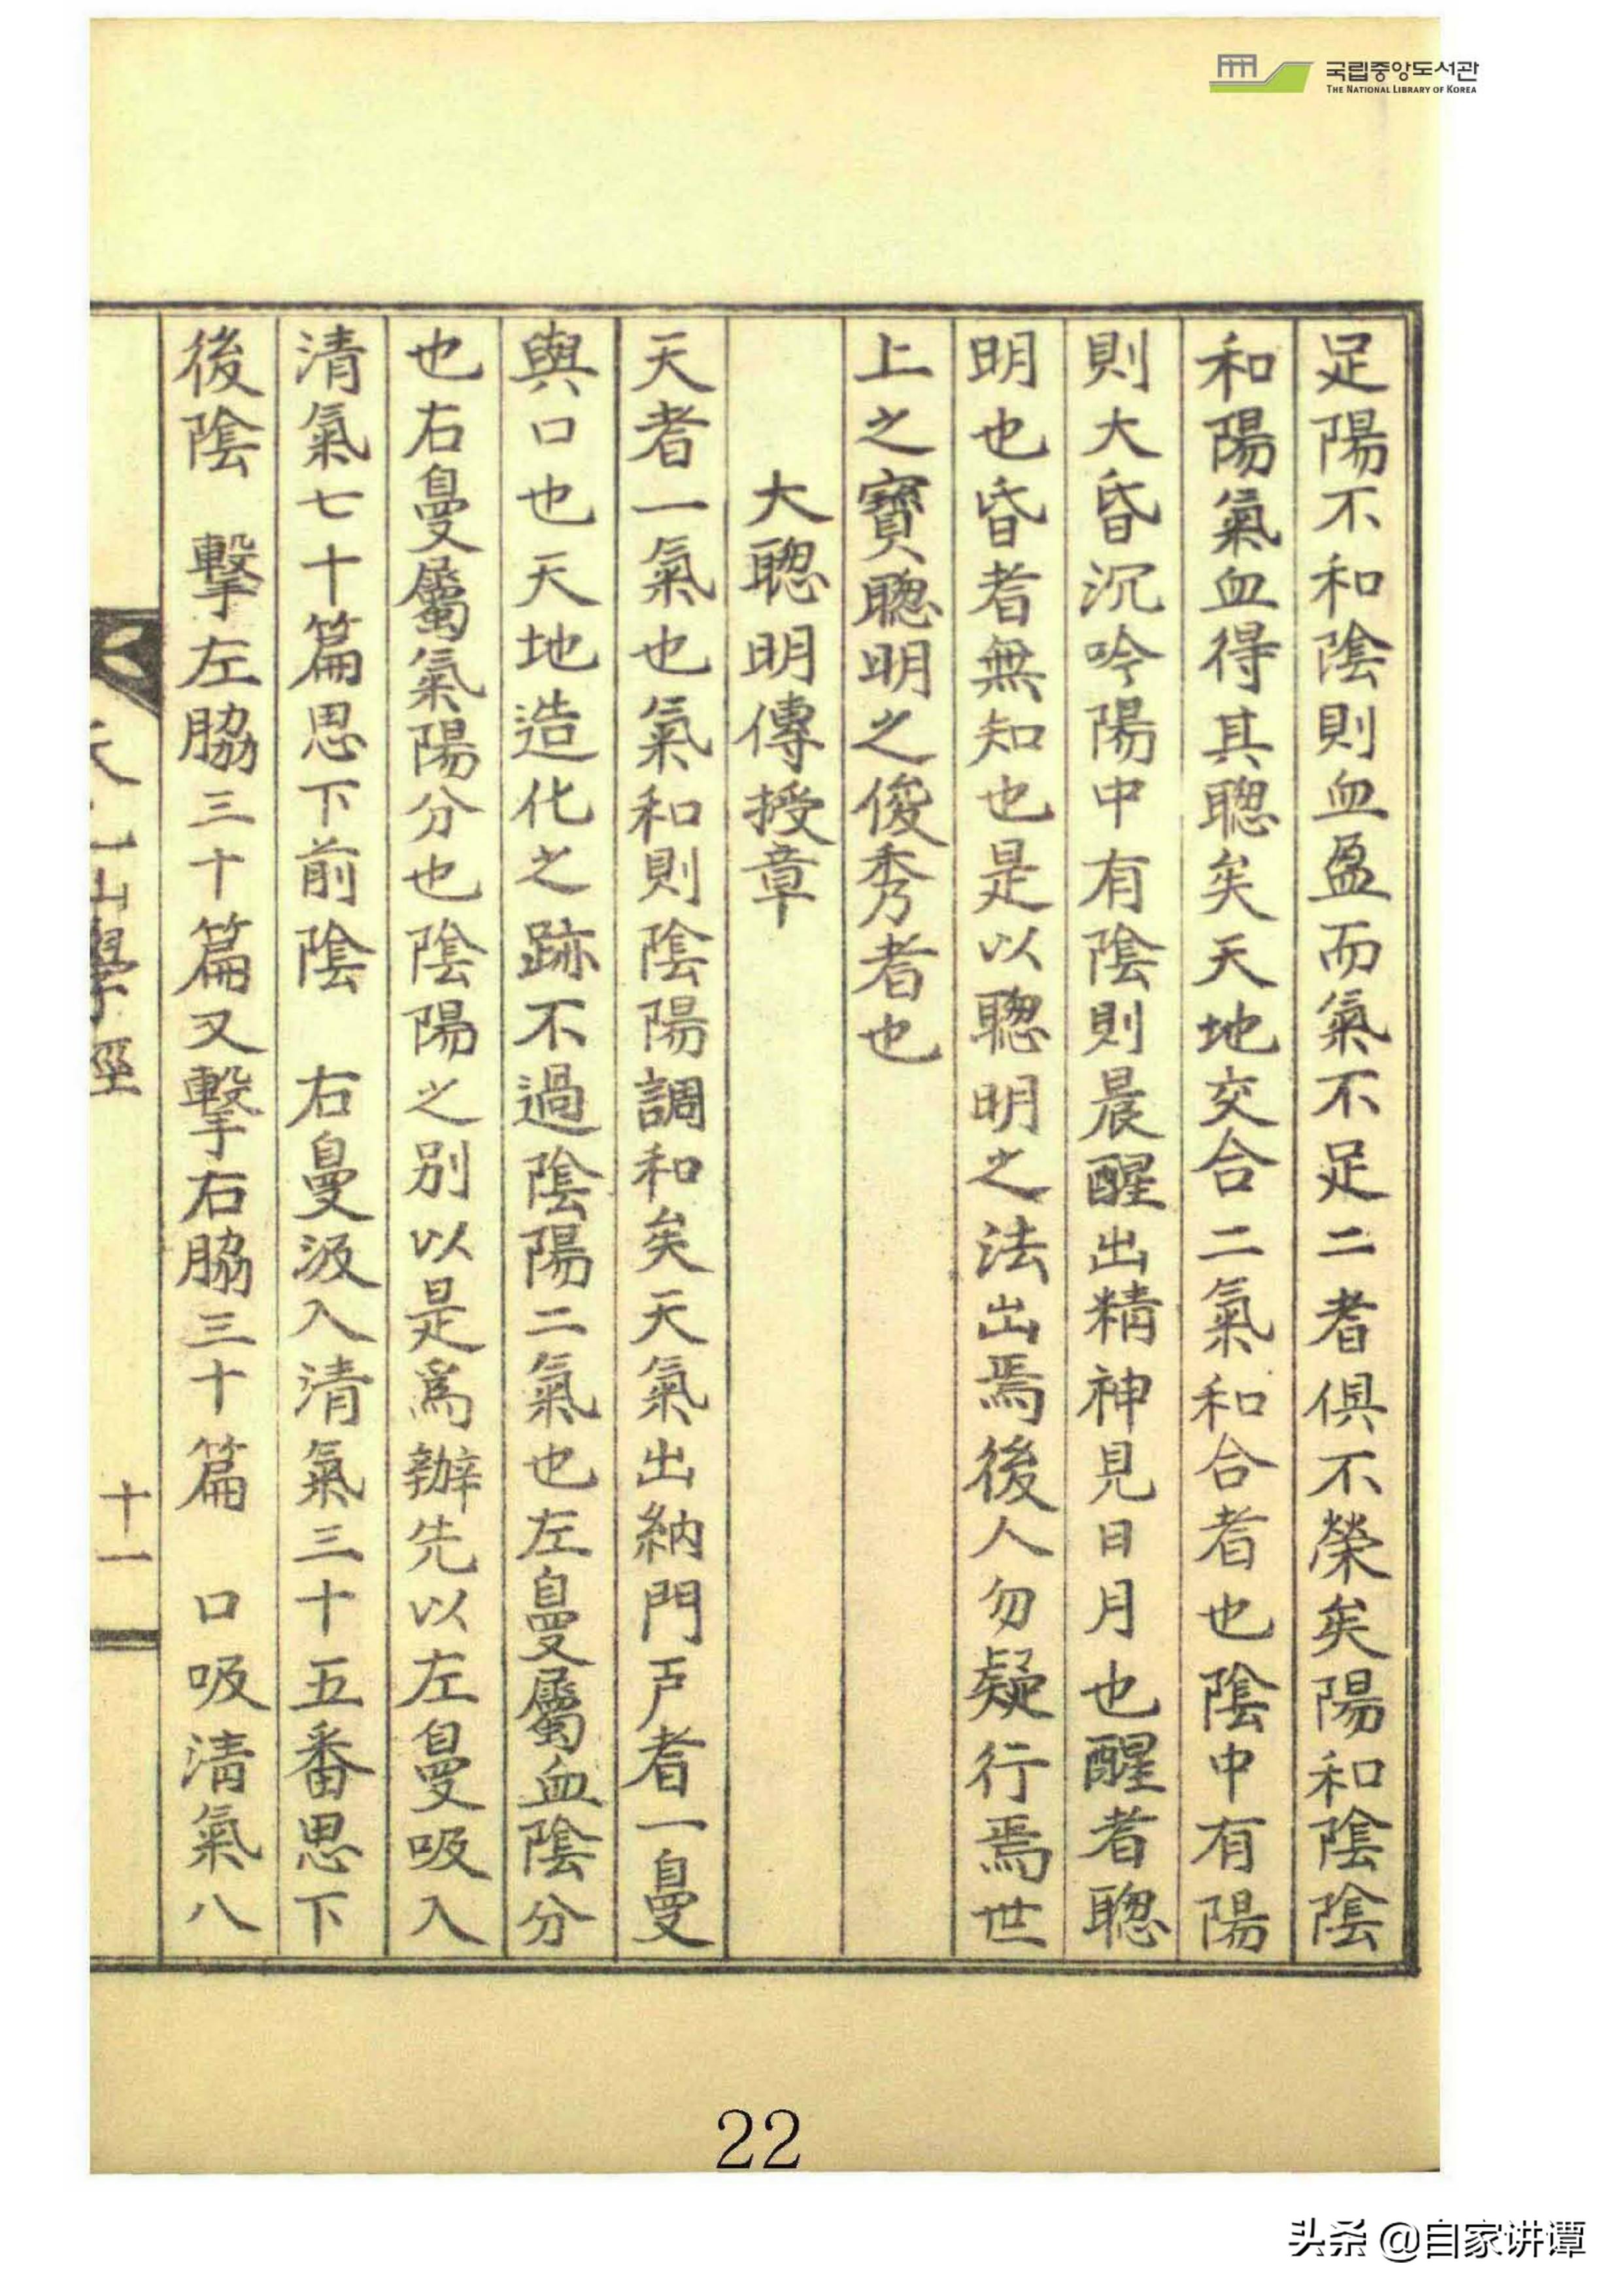 국립중앙도서관
THE NATIONAL LIBRARY OF KOREA
足陽不和陰則血盈而氣不足二者俱不榮矣陽和陰陰
和陽氣血得其聰矣天地交合二氣和合者也陰中有陽
則大昏沉吟陽中有陰則晨醒出精神見日月也醒者聰
明也昏者無知也是以聰明之法出焉後人勿疑行焉世
上之寶聰明之俊秀者也
大聰明傳授章
天者一氣也氣和則陰陽調和矣天氣出納門戶者一鼻
與口也天地造化之跡不過陰陽二氣也左鼻屬血陰分
也右鼻屬氣陽分也陰陽之別以是爲辦先以左鼻吸入
清氣七十篇思下前陰 右鼻汲入清氣三十五番思下
後陰 擊左脇三十篇又擊右脇三十篇 口吸淸氣八
學經
十一
22
头条 @自家讲谭